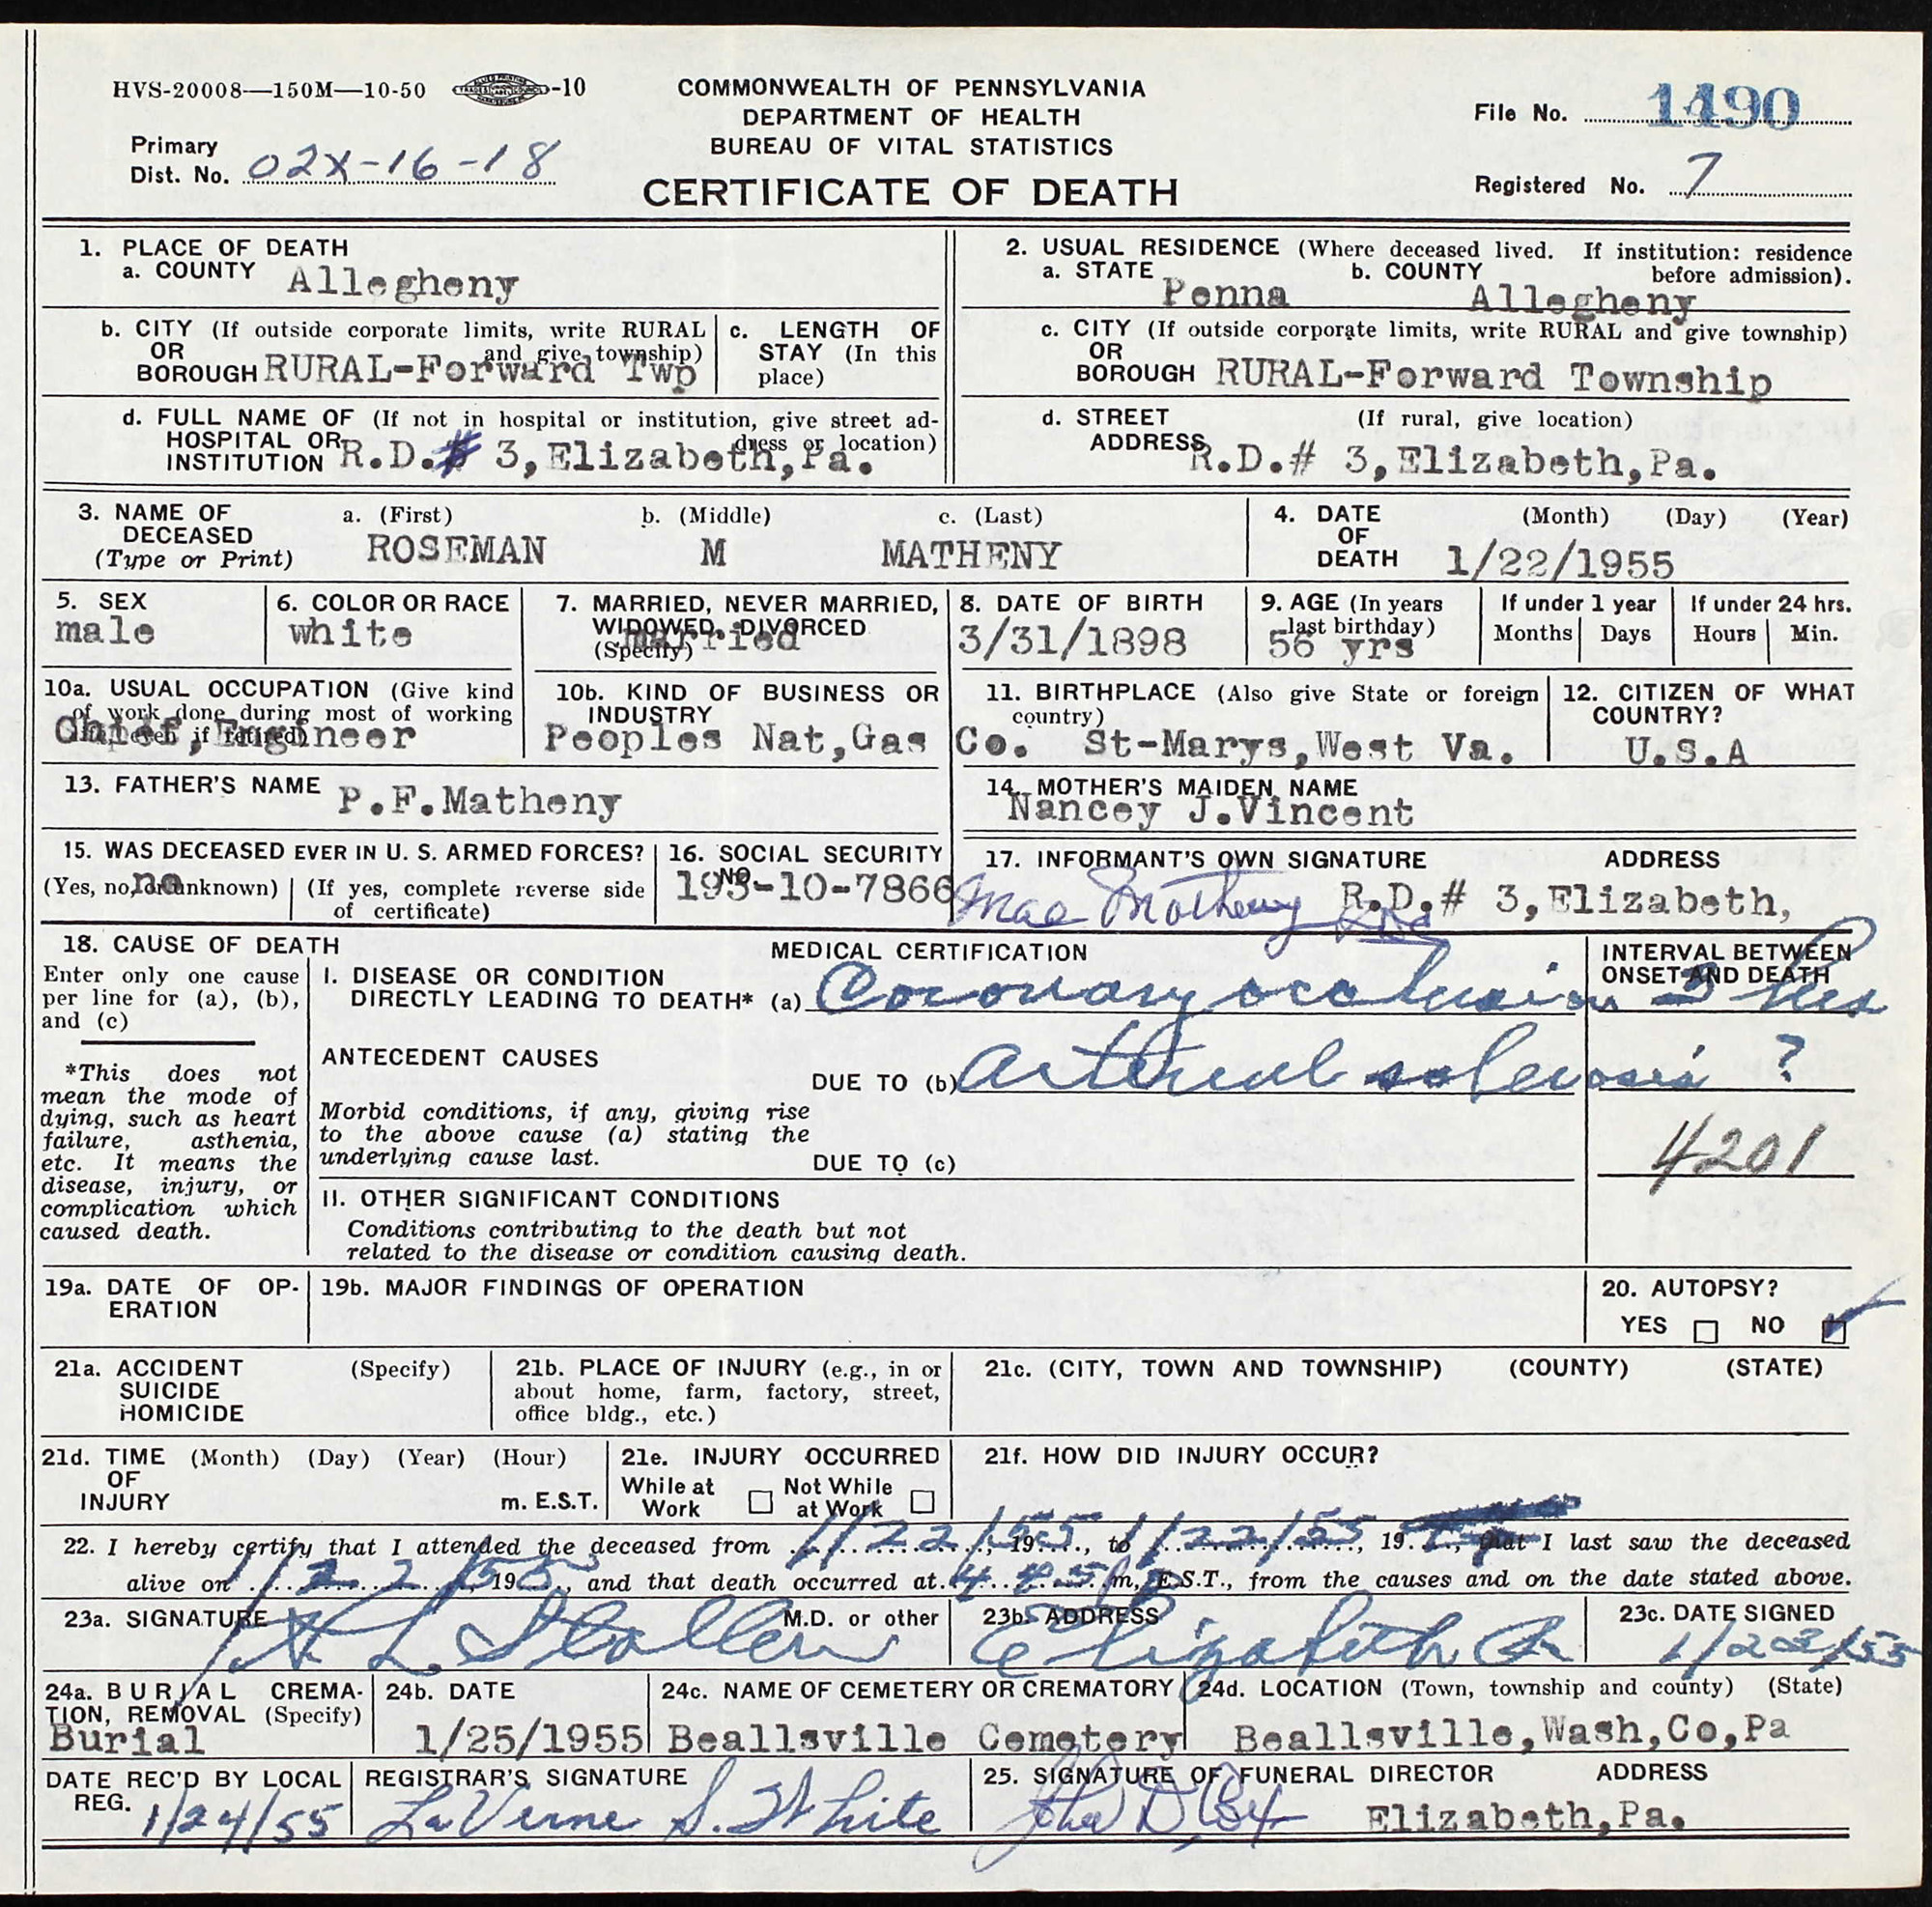 HVS-20008—150M—10-50 -10
COMMONWEALTH OF PENNSYLVANIA
DEPARTMENT OF HEALTH
BUREAU OF VITAL STATISTICS
CERTIFICATE OF DEATH
File No. 1490
Primary
Dist. No. 02X-16-18
Registered No. 7
1. PLACE OF DEATH
a. COUNTY Allegheny
2. USUAL RESIDENCE (Where deceased lived. If institution: residence
before admission).
a. STATE Penna b. COUNTY Allegheny
b. CITY (If outside corporate limits, write RURAL
OR and give township)
BOROUGH RURAL-Forward Twp
c. LENGTH OF
STAY (In this
place)
c. CITY (If outside corporate limits, write RURAL and give township)
OR
BOROUGH RURAL-Forward Township
d. FULL NAME OF (If not in hospital or institution, give street ad-
HOSPITAL OR dress or location)
INSTITUTION R.D.# 3,Elizabeth,Pa.
d. STREET (If rural, give location)
ADDRESS R.D.# 3,Elizabeth,Pa.
3. NAME OF
DECEASED
(Type or Print)
a. (First) b. (Middle) c. (Last)
ROSEMAN M MATHENY
4. DATE (Month) (Day) (Year)
OF
DEATH 1/22/1955
5. SEX
male
6. COLOR OR RACE
white
7. MARRIED, NEVER MARRIED,
WIDOWED, DIVORCED
(Specify) married
8. DATE OF BIRTH
3/31/1898
9. AGE (In years
last birthday)
56 yrs
If under 1 year
Months Days
If under 24 hrs.
Hours Min.
10a. USUAL OCCUPATION (Give kind
of work done during most of working
life, even if retired)
Chief,Engineer
10b. KIND OF BUSINESS OR
INDUSTRY
Peoples Nat,Gas Co.
11. BIRTHPLACE (Also give State or foreign
country)
St-Marys,West Va.
12. CITIZEN OF WHAT
COUNTRY?
U.S.A
13. FATHER'S NAME P.F.Matheny
14. MOTHER'S MAIDEN NAME
Nancey J.Vincent
15. WAS DECEASED EVER IN U. S. ARMED FORCES?
(Yes, no, or unknown) (If yes, complete reverse side
of certificate)
no
16. SOCIAL SECURITY
NO.
193-10-7866
17. INFORMANT'S OWN SIGNATURE ADDRESS
Mae Matheny R.D.# 3,Elizabeth,
18. CAUSE OF DEATH
Enter only one cause
per line for (a), (b),
and (c)
*This does not
mean the mode of
dying, such as heart
failure, asthenia,
etc. It means the
disease, injury, or
complication which
caused death.
MEDICAL CERTIFICATION
I. DISEASE OR CONDITION
DIRECTLY LEADING TO DEATH* (a) Coronary occlusion
INTERVAL BETWEEN
ONSET AND DEATH
3 hrs
ANTECEDENT CAUSES
DUE TO (b) Arterial sclerosis ?
Morbid conditions, if any, giving rise
to the above cause (a) stating the
underlying cause last.
DUE TO (c)
4201
II. OTHER SIGNIFICANT CONDITIONS
Conditions contributing to the death but not
related to the disease or condition causing death.
19a. DATE OF OP-
ERATION
19b. MAJOR FINDINGS OF OPERATION
20. AUTOPSY?
YES NO
21a. ACCIDENT (Specify)
SUICIDE
HOMICIDE
21b. PLACE OF INJURY (e.g., in or
about home, farm, factory, street,
office bldg., etc.)
21c. (CITY, TOWN AND TOWNSHIP) (COUNTY) (STATE)
21d. TIME (Month) (Day) (Year) (Hour)
OF
INJURY m. E.S.T.
21e. INJURY OCCURRED
While at Not While
Work at Work
21f. HOW DID INJURY OCCUR?
22. I hereby certify that I attended the deceased from 1/22/55, 19, to 1/22/55, 19, that I last saw the deceased
alive on 1/22/55, 19, and that death occurred at 4 45 P m, E.S.T., from the causes and on the date stated above.
23a. SIGNATURE M.D. or other
L.
23b. ADDRESS
Elizabeth Pa
23c. DATE SIGNED
1/23/55
24a. BURIAL CREMA-
TION, REMOVAL (Specify)
Burial
24b. DATE
1/25/1955
24c. NAME OF CEMETERY OR CREMATORY
Beallsville Cemetery
24d. LOCATION (Town, township and county) (State)
Beallsville,Wash,Co,Pa
DATE REC'D BY LOCAL
REG. 1/24/55
REGISTRAR'S SIGNATURE
LaVerne S. White
25. SIGNATURE OF FUNERAL DIRECTOR ADDRESS
John D Elizabeth,Pa.